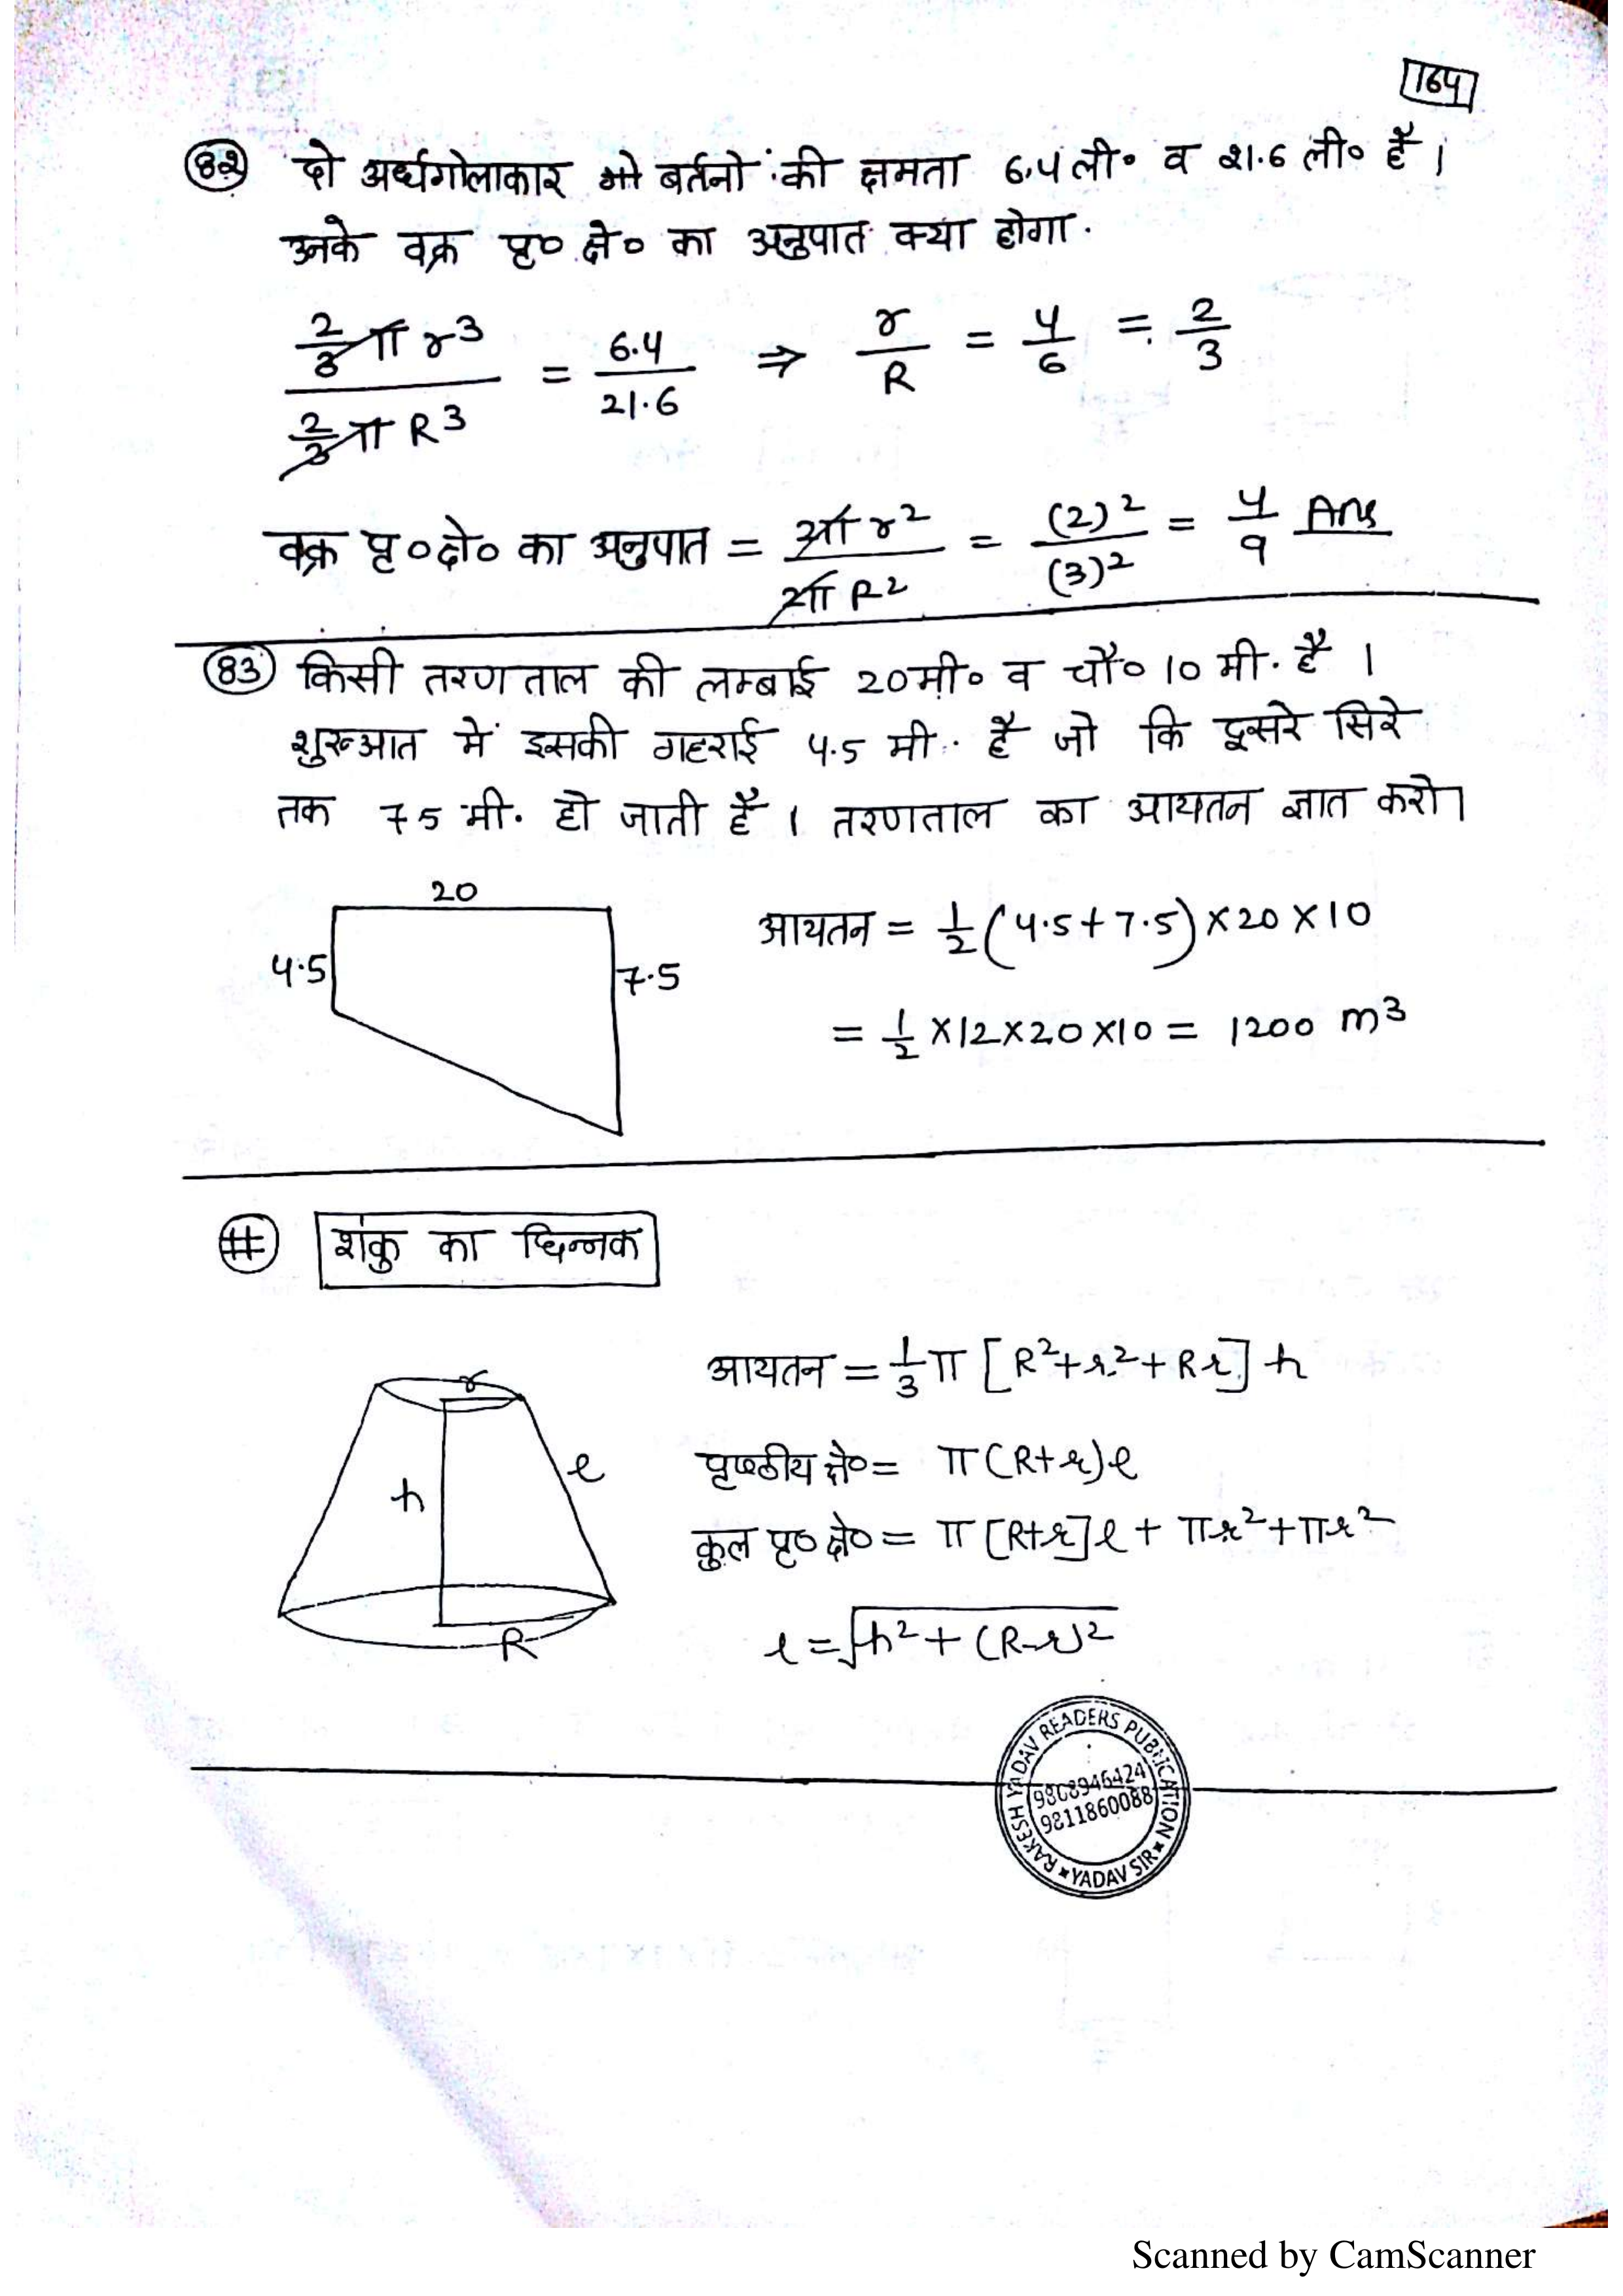 164
82 दो अर्धगोलाकार बर्तनों की क्षमता 6.4 ली० व 21.6 ली० है।
उनके वक्र पृ० क्षे० का अनुपात क्या होगा.
(2/3 π r³)/(2/3 π R³) = 6.4/21.6 ⇒ r/R = 4/6 = 2/3
वक्र पृ०क्षे० का अनुपात = 2π r²/2π R² = (2)²/(3)² = 4/9 Ans
83 किसी तरणताल की लम्बाई 20मी० व चौ० 10 मी. है ।
शुरूआत में इसकी गहराई 4.5 मी. है जो कि दूसरे सिरे
तक 7.5 मी. हो जाती है । तरणताल का आयतन ज्ञात करो।
20
4.5
7.5
आयतन = 1/2 (4.5+7.5)×20×10
= 1/2 ×12×20×10 = 1200 m³
# शंकु का छिन्नक
r
h
l
R
आयतन = 1/3 π [R²+r²+Rr] h
पृष्ठीय क्षे० = π(R+r)l
कुल पृ० क्षे० = π [R+r]l + πr²+πr²
l = √h²+(R-r)²
RAKESH YADAV READERS PUBLICATION
9868946424
9811860088
YADAV SIR
Scanned by CamScanner